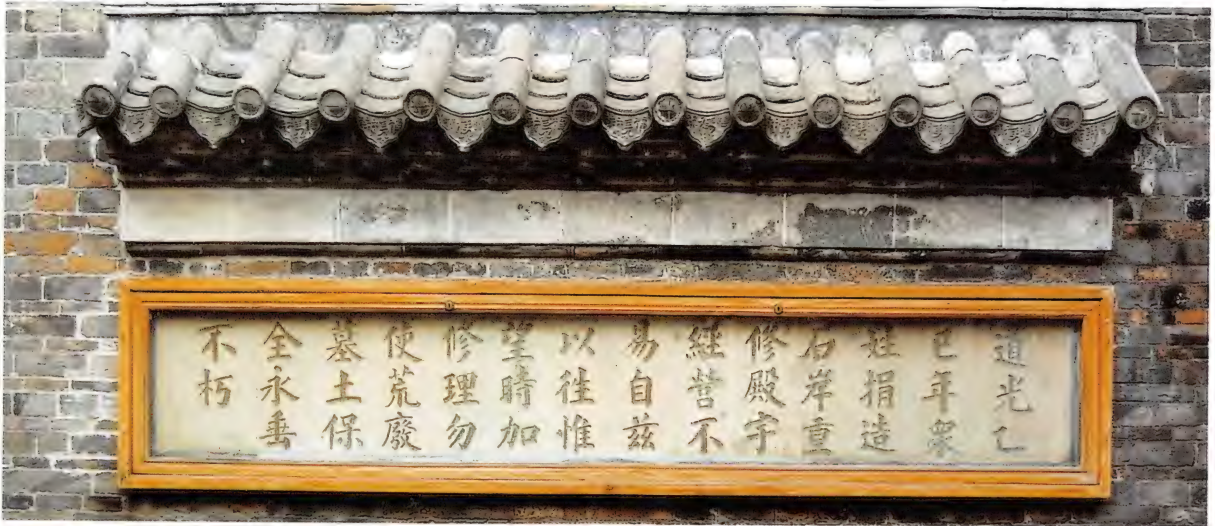 道光乙
巳年衆
姓捐造
石岸重
修殿宇
經営不
易自兹
以徃惟
望時加
修理勿
使荒廢
墓土保
全永垂
不朽